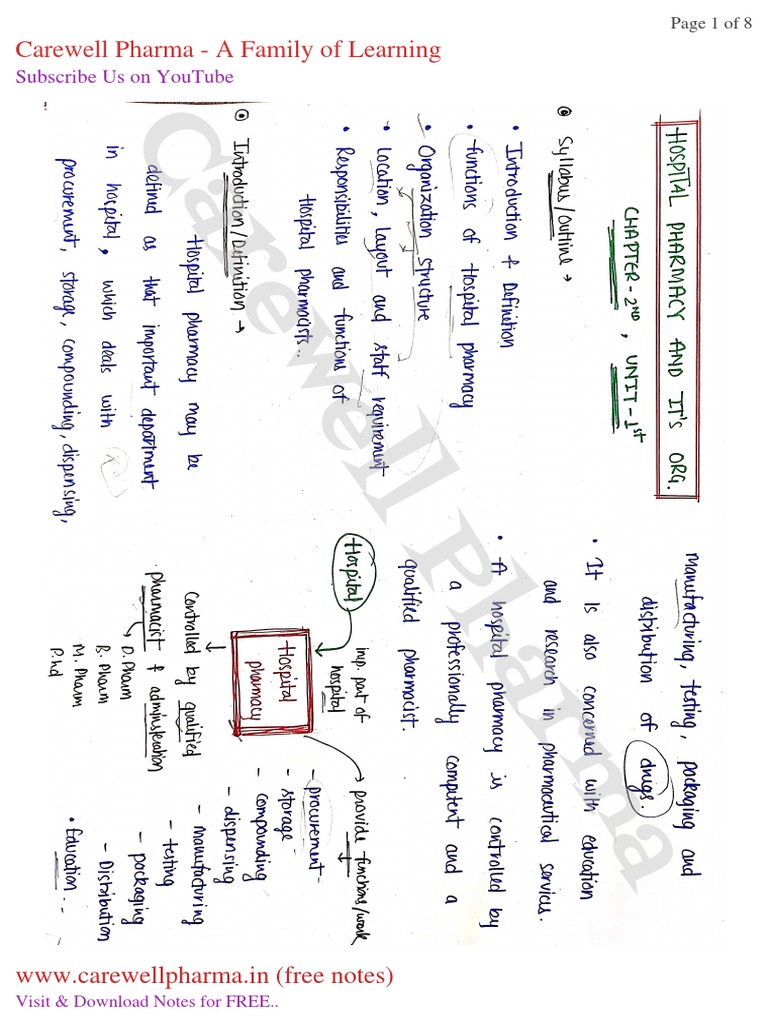 Page 1 of 8
Carewell Pharma - A Family of Learning
Subscribe Us on YouTube
HOSPITAL PHARMACY AND IT'S ORG.
CHAPTER - 2ND, UNIT - 1st
Syllabus/Outline →
• Introduction & Definition
• functions of Hospital pharmacy
• Organization structure
• Location, layout and staff requirement
• Responsibilities and functions of
Hospital pharmacists..
Introduction/Definition →
Hospital pharmacy may be
defined as that important department
in hospital, which deals with
procurement, storage, compounding, dispensing,
manufacturing, testing, packaging and
distibution of drugs.
• It is also concerned with education
and research in pharmaceutical services.
• A hospital pharmacy is controlled by
a professionally competent and a
qualified pharmacist.
Hospital
imp. part of
hospital
Hospital
pharmacy
Controlled by qualified
pharmacist & administration
D. Pharm
B. Pharm
M. Pharm
P.hd
provide functions/work
- procurement -
- storage -
- compounding
- dispensing
- manufacturing
- testing
- packaging
- Distribution
• Education...
Carewell Pharma
www.carewellpharma.in (free notes)
Visit & Download Notes for FREE..